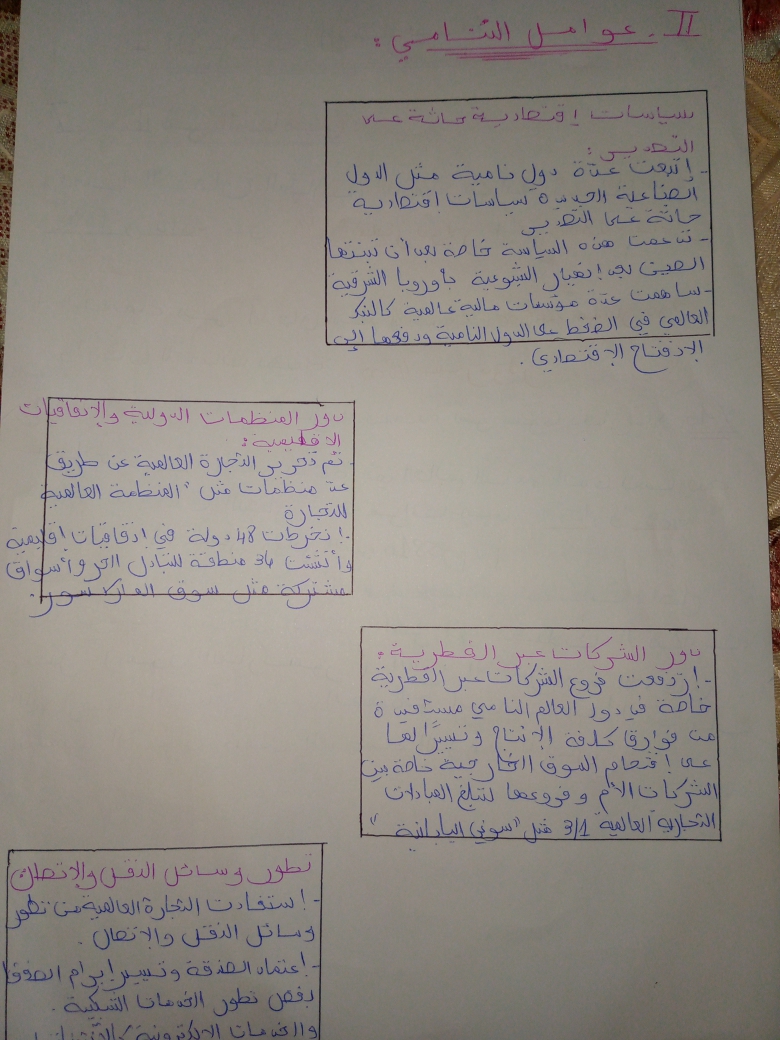 II. عوامل التنامي :
سياسات إقتصادية حاثة على
التصدير :
- إتبعت عدّة دول نامية مثل الدول
الصناعية الجديدة سياسات اقتصادية
حاثة على التصدير
- تدعمت هذه السياسة خاصة بعد أن تبنتها
الصين بعد إنهيار الشيوعية بأوروبا الشرقية
- ساهمت عدة مؤسسات مالية عالمية كالبنك
العالمي في الضغط على الدول النامية ودفعها إلى
الانفتاح الاقتصادي .
دور المنظمات الدولية والإتفاقيات
الاقليمية :
- تم تحرير التجارة العالمية عن طريق
عدة منظمات مثل "المنظمة العالمية
للتجارة
- إنخرطت 48 دولة في اتفاقيات إقليمية
وأنشئت 34 منطقة للتبادل الحر وأسواق
مشتركة مثل سوق الماركسور.
دور الشركات عبر القطرية :
- إرتفعت فروع الشركات عبر القطرية
خاصة في دول العالم النامي مستفيدة
من فوارق كلفة الإنتاج وتيسيرًا لها
على إقتحام السوق الخارجية خاصة بين
الشركات الأم وفروعها لتبلغ المبادلات
التجارية العالمية 3/1 مثل "سوني اليابانية "
تطور وسائل النقل والإتصال
- إستفادت التجارة العالمية من تطور
وسائل النقل والاتصال .
- إعتماد الصفقة وتيسير إبرام الصفقا
بفضل تطور الخدمات الشبكية .
والخدمات الالكترونية